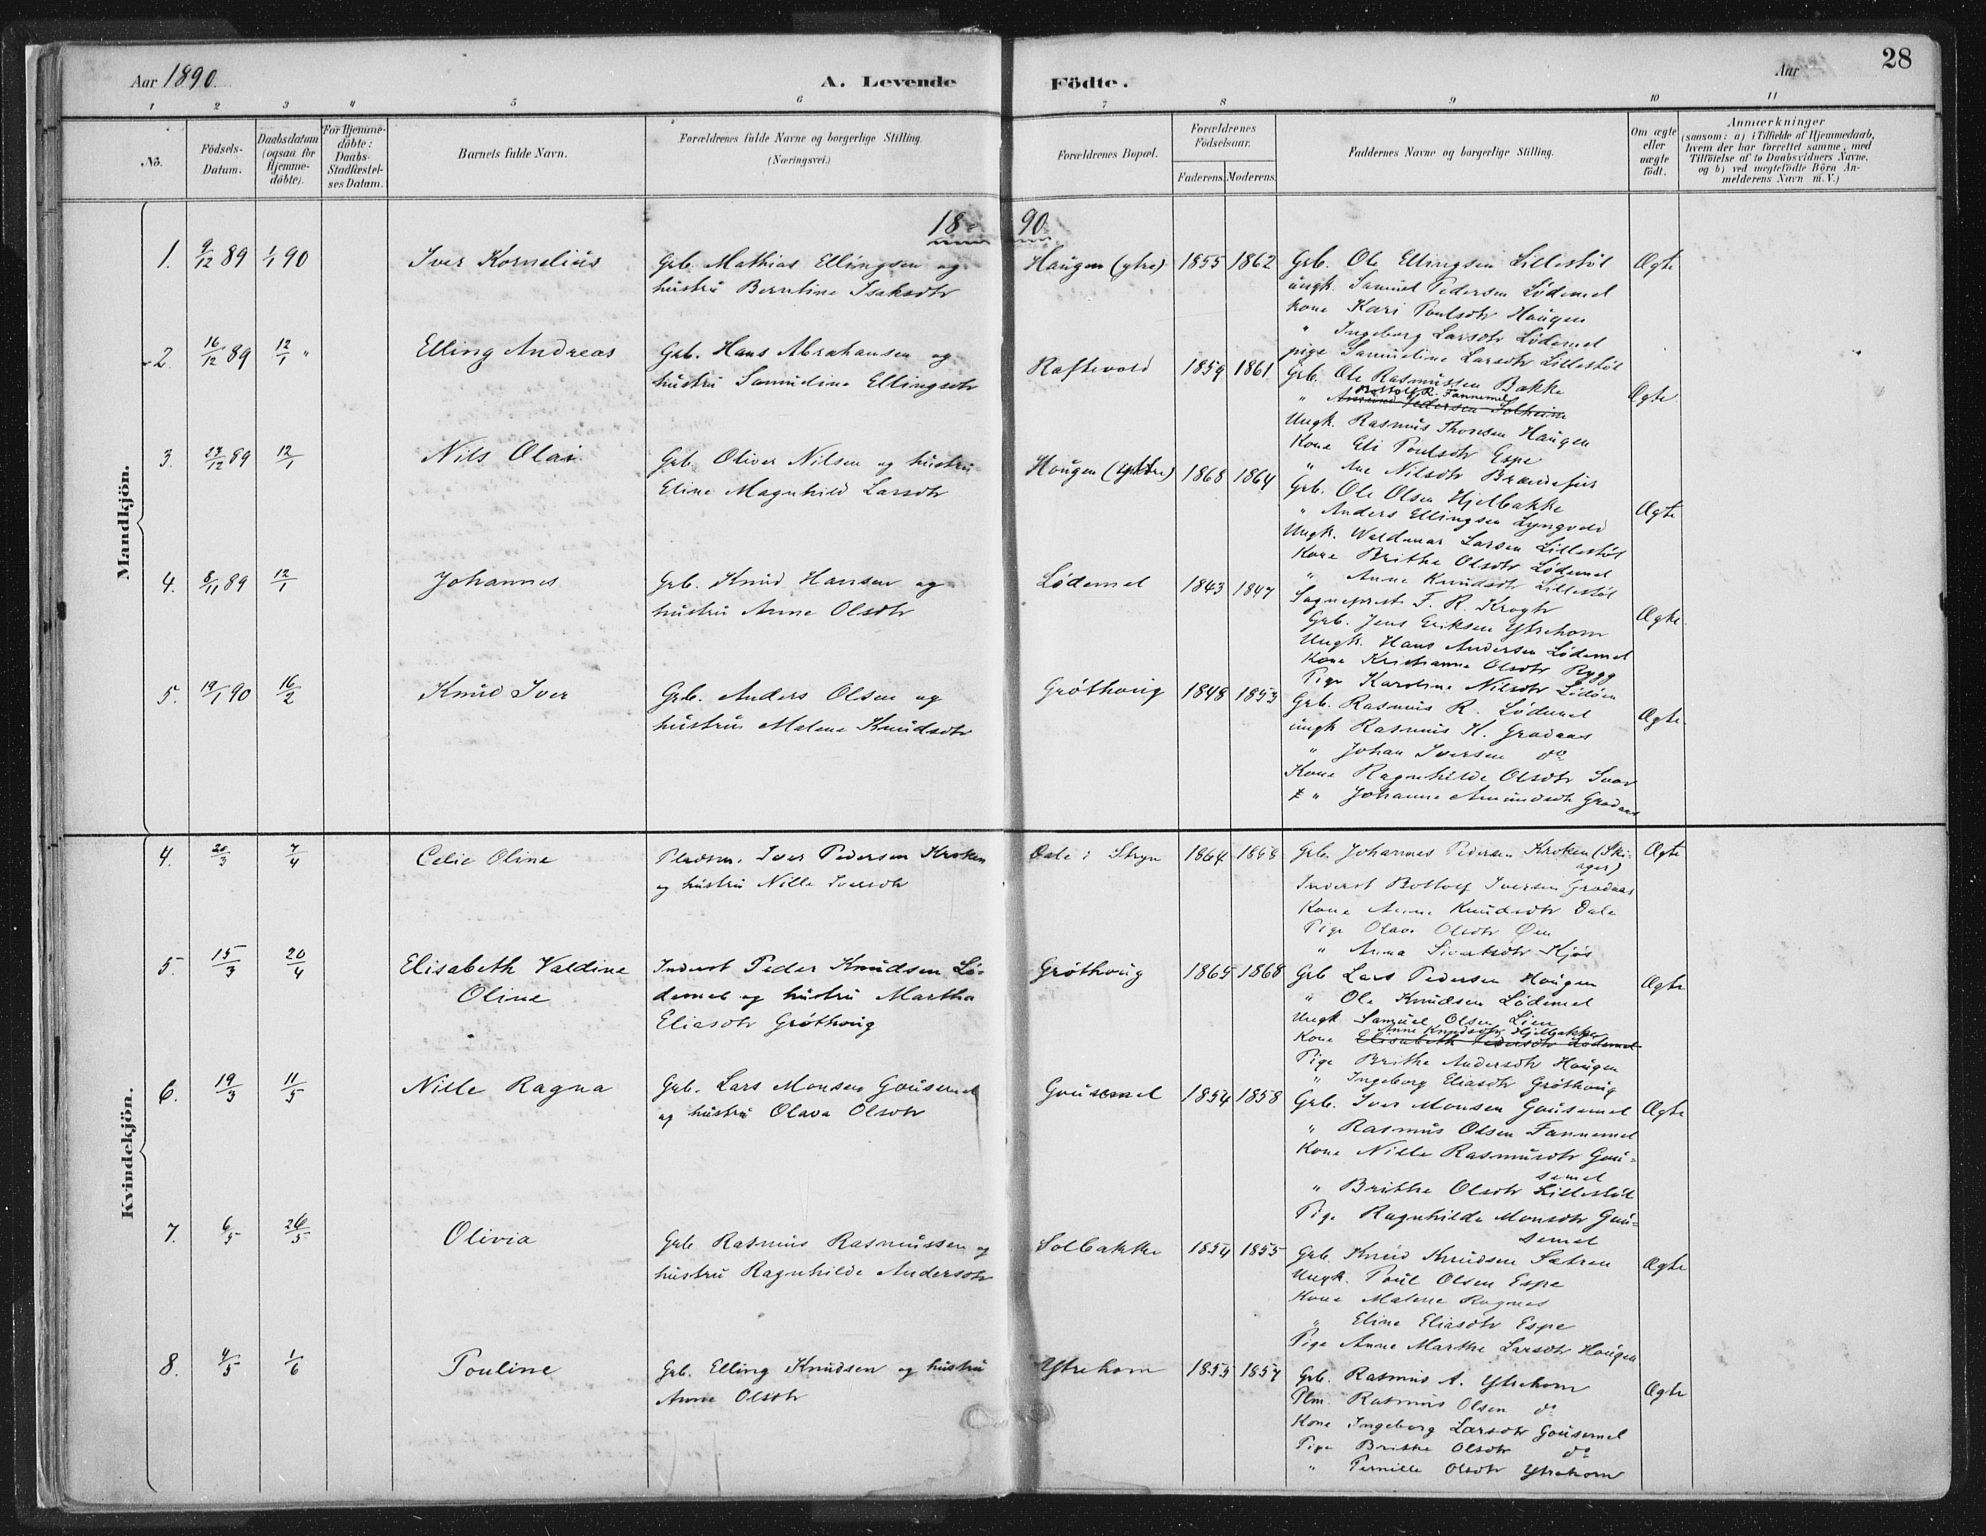 Aar 1890. A. Levende Födte. Aar 28
1 2 3 4 5 6 7 8 9 10 11
No. Födsels-Datum. Daabsdatum (ogsaa for Hjemmedöbte). For Hjemmedöbte: Daabs-Stadfæstelses Datum. Barnets fulde Navn. Forældrenes fulde Navne og borgerlige Stilling. (Næringsvei.) Forældrenes Bopæl. Forældrenes Födselsaar. Faderens. Moderens. Faddernes Navne og borgerlige Stilling. Om ægte eller uægte födt. Anmærkninger (saasom: a) i Tilfælde af Hjemmedaab, hvem der har forrettet samme, med Tilföielse af to Daabsvidners Navne, og b) ved uægtefödte Börn Anmelderens Navn m. V.)
Mandkjön.
18 90
1. 9/12 89 1/1 90 Iver Kornelius Grb. Mathias Ellingsen og Haugen (ytre) 1855 1862 Grb. Ole Ellingsen Lillestöl Ægte
hustru Berntine Isaksdtr
ungk. Samuel Pedersen Lödemel
kone Kari Poulsdtr Haugen
" Ingeborg Larsdtr Lödemel
pige Samueline Larsdtr Lillestöl
2. 16/12 89 12/1 " Elling Andreas Grb. Hans Abrahamsen og Raftevold 1859 1861 Grb. Ole Rasmussen Bakke Ægte
hustru Samudine Ellingsdtr
Bottolf R. Fannemel
" Amund Pedersen Solheim
Ungk. Rasmus Thoresen Haugen
Kone Eli Poulsdtr Espe
" Ane Nilsdtr
3. 27/12 89 12/1 Nils Olai Grb. Oliver Nilsen og hustru Haugen (ytre) 1868 1864 Grb. Ole Olsen Hjelbakke Ægte
Eline Magnhild Larsdtr
" Anders Ellingsen Lyngvold
Ungk. Waldemar Larsen Lillestöl
Kone Brithe Olsdtr Lödemel
" Anne Knudsdtr Lillestöl
4. 8/11 89 12/1 Johannes Grb. Knud Hansen og Lödemel 1843 1847 Sogneprest F. R. Krogh Ægte
hustru Anne Olsdtr
Grb. Jens Eriksen Ytrehorn
Ungk. Hans Andersen Lödemel
Kone Kristianne Olsdtr Rygg
Pige Karoline Nilsdtr
5. 19/1 90 16/2 Knud Iver Grb. Anders Olsen og Gröthoug 1848 1853 Grb. Rasmus R. Lödemel Ægte
hustru Malene Knudsdtr
ungk Rasmus K. Grodaas
" Johan Iversen do
Kone Ragnhilde Olsdtr
" Johanne Amundsdtr Grodaas
Kvindekjön.
4. 20/3 7/4 Celie Oline Pladsm. Iver Pedersen Kroken Dale i Stryn 1864 Grb. Johannes Pedersen Kroken (Skiager) Ægte
og hustru Nille Iversdtr
Inderst Bottolf Iversen Grodaas
Kone Anne Knudsdtr Dale
Pige Olava Olsdtr Öen
" Anna Sivertsdtr Kjös
5. 15/3 20/4 Elisabeth Valdine Inderst Peder Knudsen Lö- Gröthoug 1865 1868 Grb Lars Pedersen Haugen Ægte
Oline demel og hustru Martha
Eliasdtr Gröthoug
" Ole Knudsen Lödemel
Ungk Samuel Olsen Lien
Anne Knudsdtr Hjelbakke
Kone Elisabeth Pedersdtr Lödemel
Pige Brithe Andersdtr Haugen
" Ingeborg Eliasdtr Gröthoug
6. 19/3 11/5 Nille Ragna Grb. Lars Monsen Gousemel Gousemel 1854 1858 Grb. Iver Monsen Gousemel Ægte
og hustru Olava Olsdtr
" Rasmus Olsen Fannemel
Kone Nille Rasmusdtr Gou-
semel
" Brithe Olsdtr Lillestöl
Pige Ragnhilde Monsdtr Gou-
semel
7. 6/5 26/5 Olivia Grb Rasmus Rasmussen og Solbakke 1854 1855 Grb. Knud Knudsen Sætren Ægte
hustru Ragnhilde Andersdtr
Ungk. Poul Olsen Espe
Kone Malene Ragnes
" Eline Eliasdtr Espe
Pige Anne Marthe Larsdtr Haugen
8. 4/5 1/6 Pouline Grb. Elling Knudsen og hustru Ytrehorn 1855 1857 Grb. Rasmus A. Ytrehorn Ægte
Anne Olsdtr
Plm. Rasmus Olsen do
Kone Ingeborg Larsdtr Gousemel
Pige Brithe Olsdtr do
" Pernille Olsdtr Ytrehorn